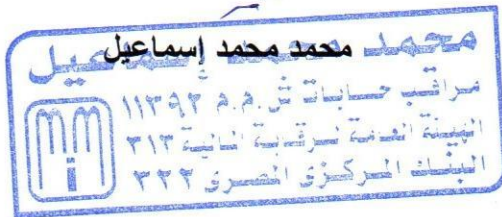 محمد محمد إسماعيل
محمد محمد إسماعيل
مراقب حسابات ش.م.م ١١٣٩٢
الهيئة العامة للرقابة المالية ٣١٣
البنك المركزى المصرى ٣٢٢